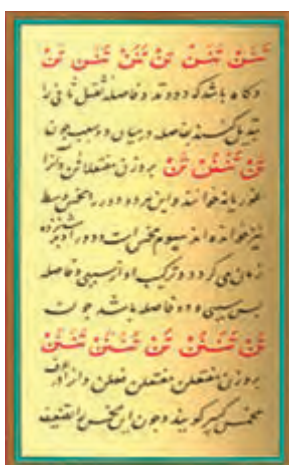 تَنَنَنْ تَنَنَنْ تَنْ تَنَنْ تَنَنَنْ تَنْ
وگاه باشد که دو وتد و فاصله ثقیل ثانی را
تبدیل کنند بفاصله در میان دو سبب چون
تَنْ تَنَنَنَنْ تَنْ بر وزن مفتعلاتن و آنرا
خوانند و این هر دو دور را مخمس وسط
نیز خوانده‌اند سیوم مخمس است و دور او شانزده
زمان می‌گردد و ترکیب او از سببی و فاصله
پس سببی و دو فاصله باشد چون
تَنْ تَنَنَنْ تَنْ تَنَنَنْ تَنَنَنْ
بر وزن مفتعلن مفتعلن فعلن و از
مخمس کبیر گویند و چون این مخمس را تنصیف